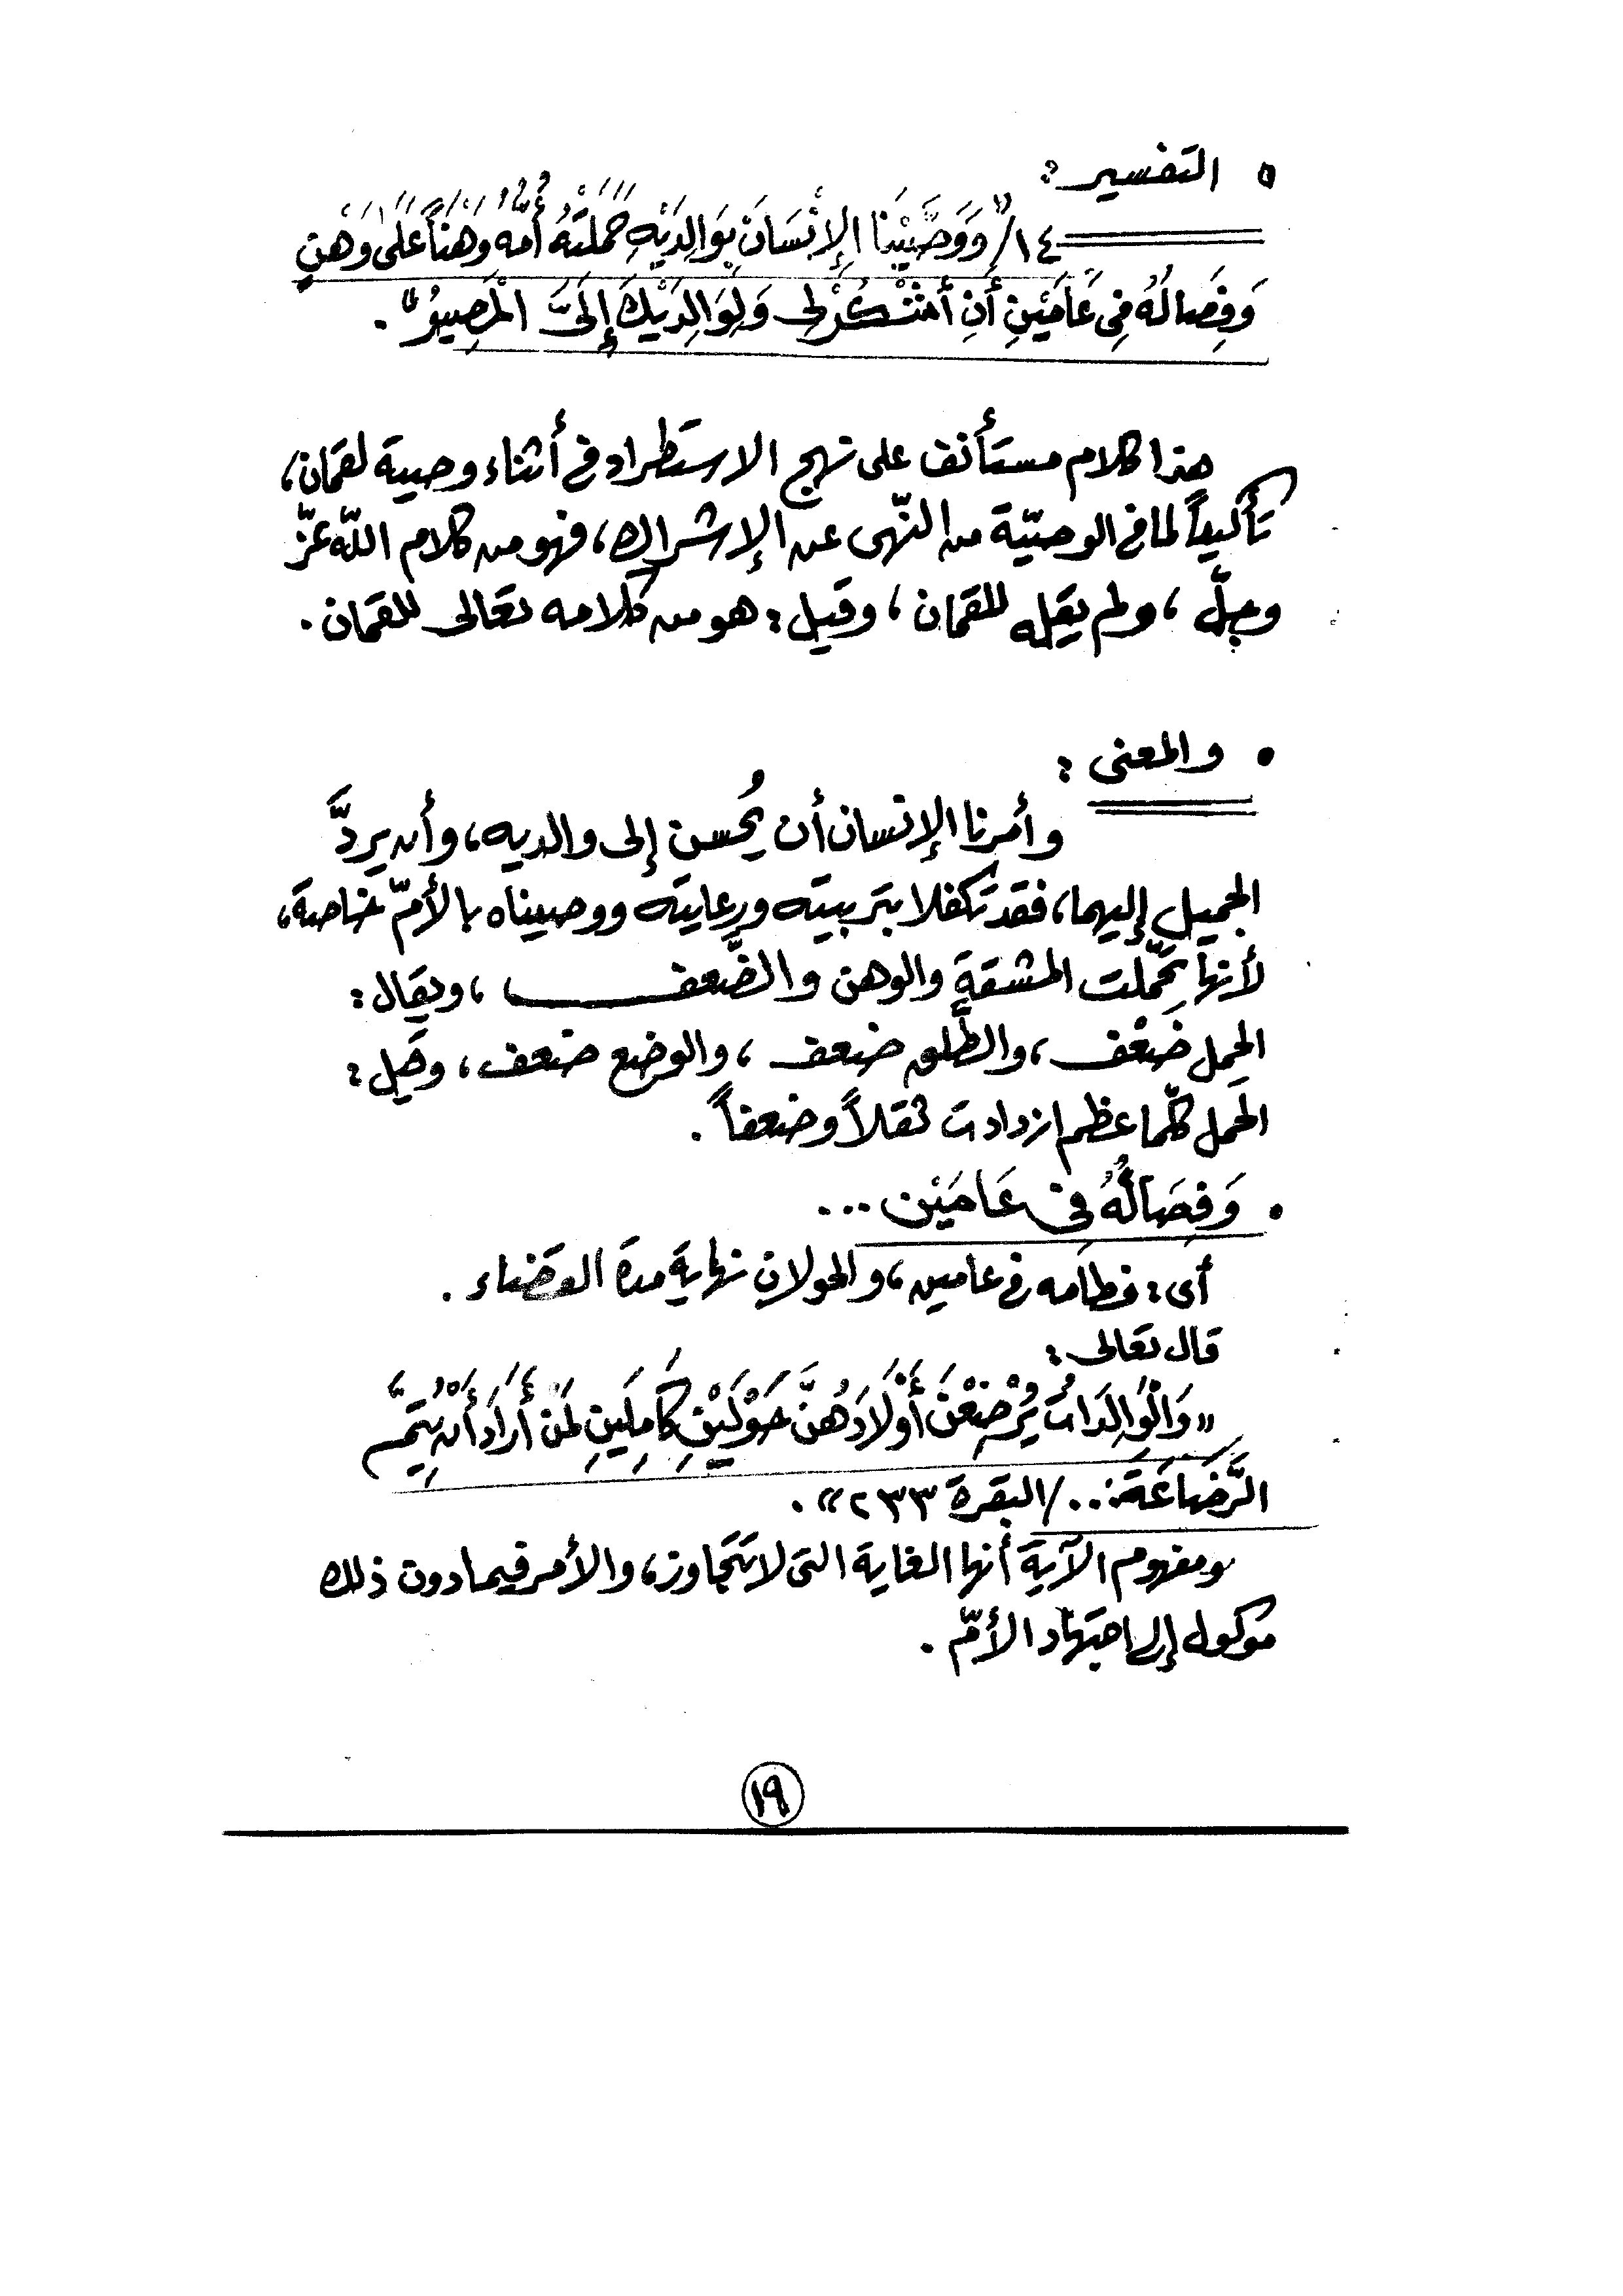 • التفسير :
١٤/ "وَوَصَّيْنَا الإِنْسَانَ بِوَالِدَيْهِ حَمَلَتْهُ أُمُّهُ وَهْنَاً عَلَى وَهْنٍ
وَفِصَالُهُ فِى عَامَيْنِ أَنِ اشْكُرْ لِى وَلِوَالِدَيْكَ إِلَىَّ الْمَصِيرُ" .
هذا كلام مستأنف على نهج الاستطراد فى أثناء وصية لقمان،
تأكيداً لما فى الوصيّة من النّهى عن الإشراك، فهو من كلام اللّه عزّ
وجلّ ، ولم يقله للقمان ، وقيل : هو من كلامه تعالى للقمان .
• والمعنى :
وأمرنا الإنسان أن يُحسن إلى والديه، وأن يردَّ
الجميل إليهما، فقد تكفلا بتربيته ورعايته ووصيناه بالأمّ خاصة،
لأنها تحمّلت المشقة والوهن والضّعف ، ويقال :
الحمل ضَعْف ، والطّلق ضعف ، والوضع ضعف ، وقيل :
الحَمل كلّما عظم ازدادت ثقلاً وضعفاً .
• وَفِصَالُهُ فِى عَامَيْن ...
أى : فطامه فى عامين ، والحولان نهاية مدة القضاء .
قال تعالى :
"وَالْوَالِدَاتُ يُرْضِعْنَ أَوْلَادَهُنَّ حَوْلَيْنِ كَامِلَينِ لمَنْ أَرَادَ أَن يُتِمَّ
الرَّضَاعَةَ.../البقرة ٢٣٣" .
ومفهوم الآية أنها الغاية التى لا تتجاوز ، والأمر فيما دون ذلك
موكول إلى اجتهاد الأمّ .
١٩